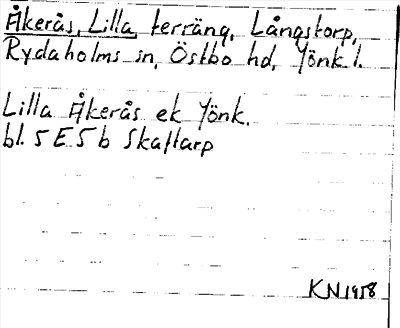 Åkerås, Lilla, terräng, Långstorp,
Rydaholms sn, Östbo hd, Jönk l.
Lilla Åkerås ek Jönk.
bl. 5 E 5 b Skaftarp
KN 1958